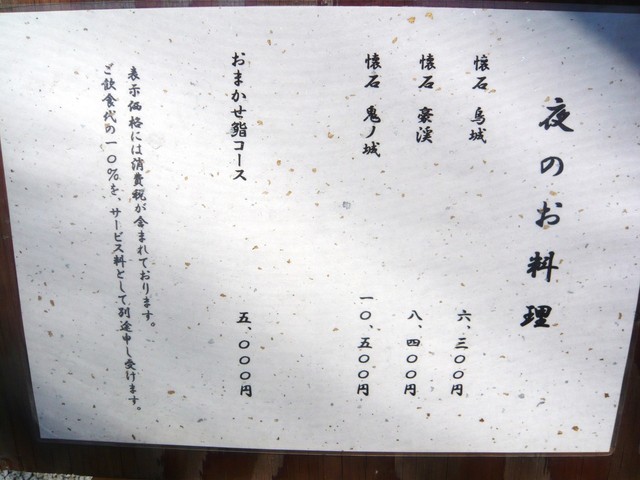 夜のお料理
懐石 烏城 六、三〇〇円
懐石 豪渓 八、四〇〇円
懐石 鬼ノ城 一〇、五〇〇円
おまかせ鮨コース 五、〇〇〇円
表示価格には消費税が含まれております。
ご飲食代の一〇%を、サービス料として別途申し受けます。